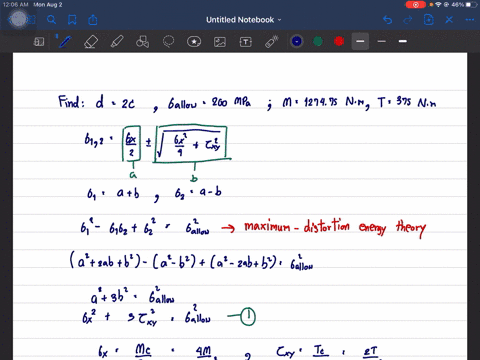 12:06 AM Mon Aug 2
46%
Untitled Notebook
Find: d = 2c , σallow = 200 MPa ; M = 1274.75 N.m, T = 375 N.m
σ1,2 = σx/2 ± √(σx²/4 + τxy²)
a b
σ1 = a+b , σ2 = a-b
σ1² - σ1σ2 + σ2² = σ²allow → maximum-distortion energy theory
(a²+2ab+b²) - (a²-b²) + (a²-2ab+b²) = σ²allow
a²+3b² = σ²allow
σx² + 3τxy² = σ²allow — 1
σx = Mc = 4M , τxy = Tc = 2T